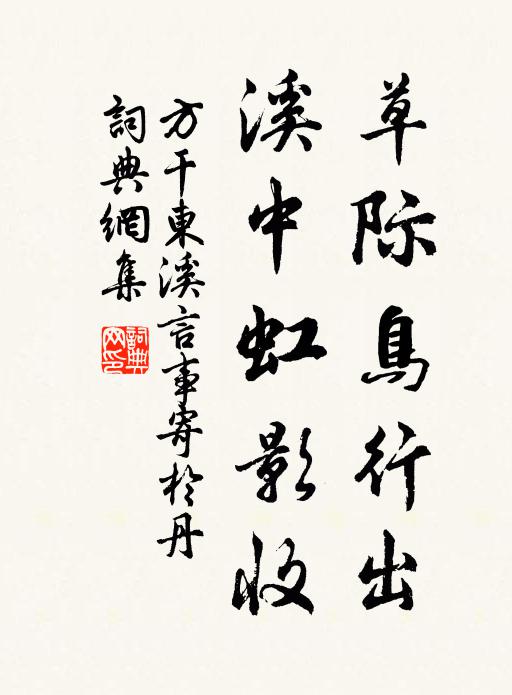 草际鳥行出
溪中虹影收
方干東溪言事寄於丹
詞典網集
詞典網印